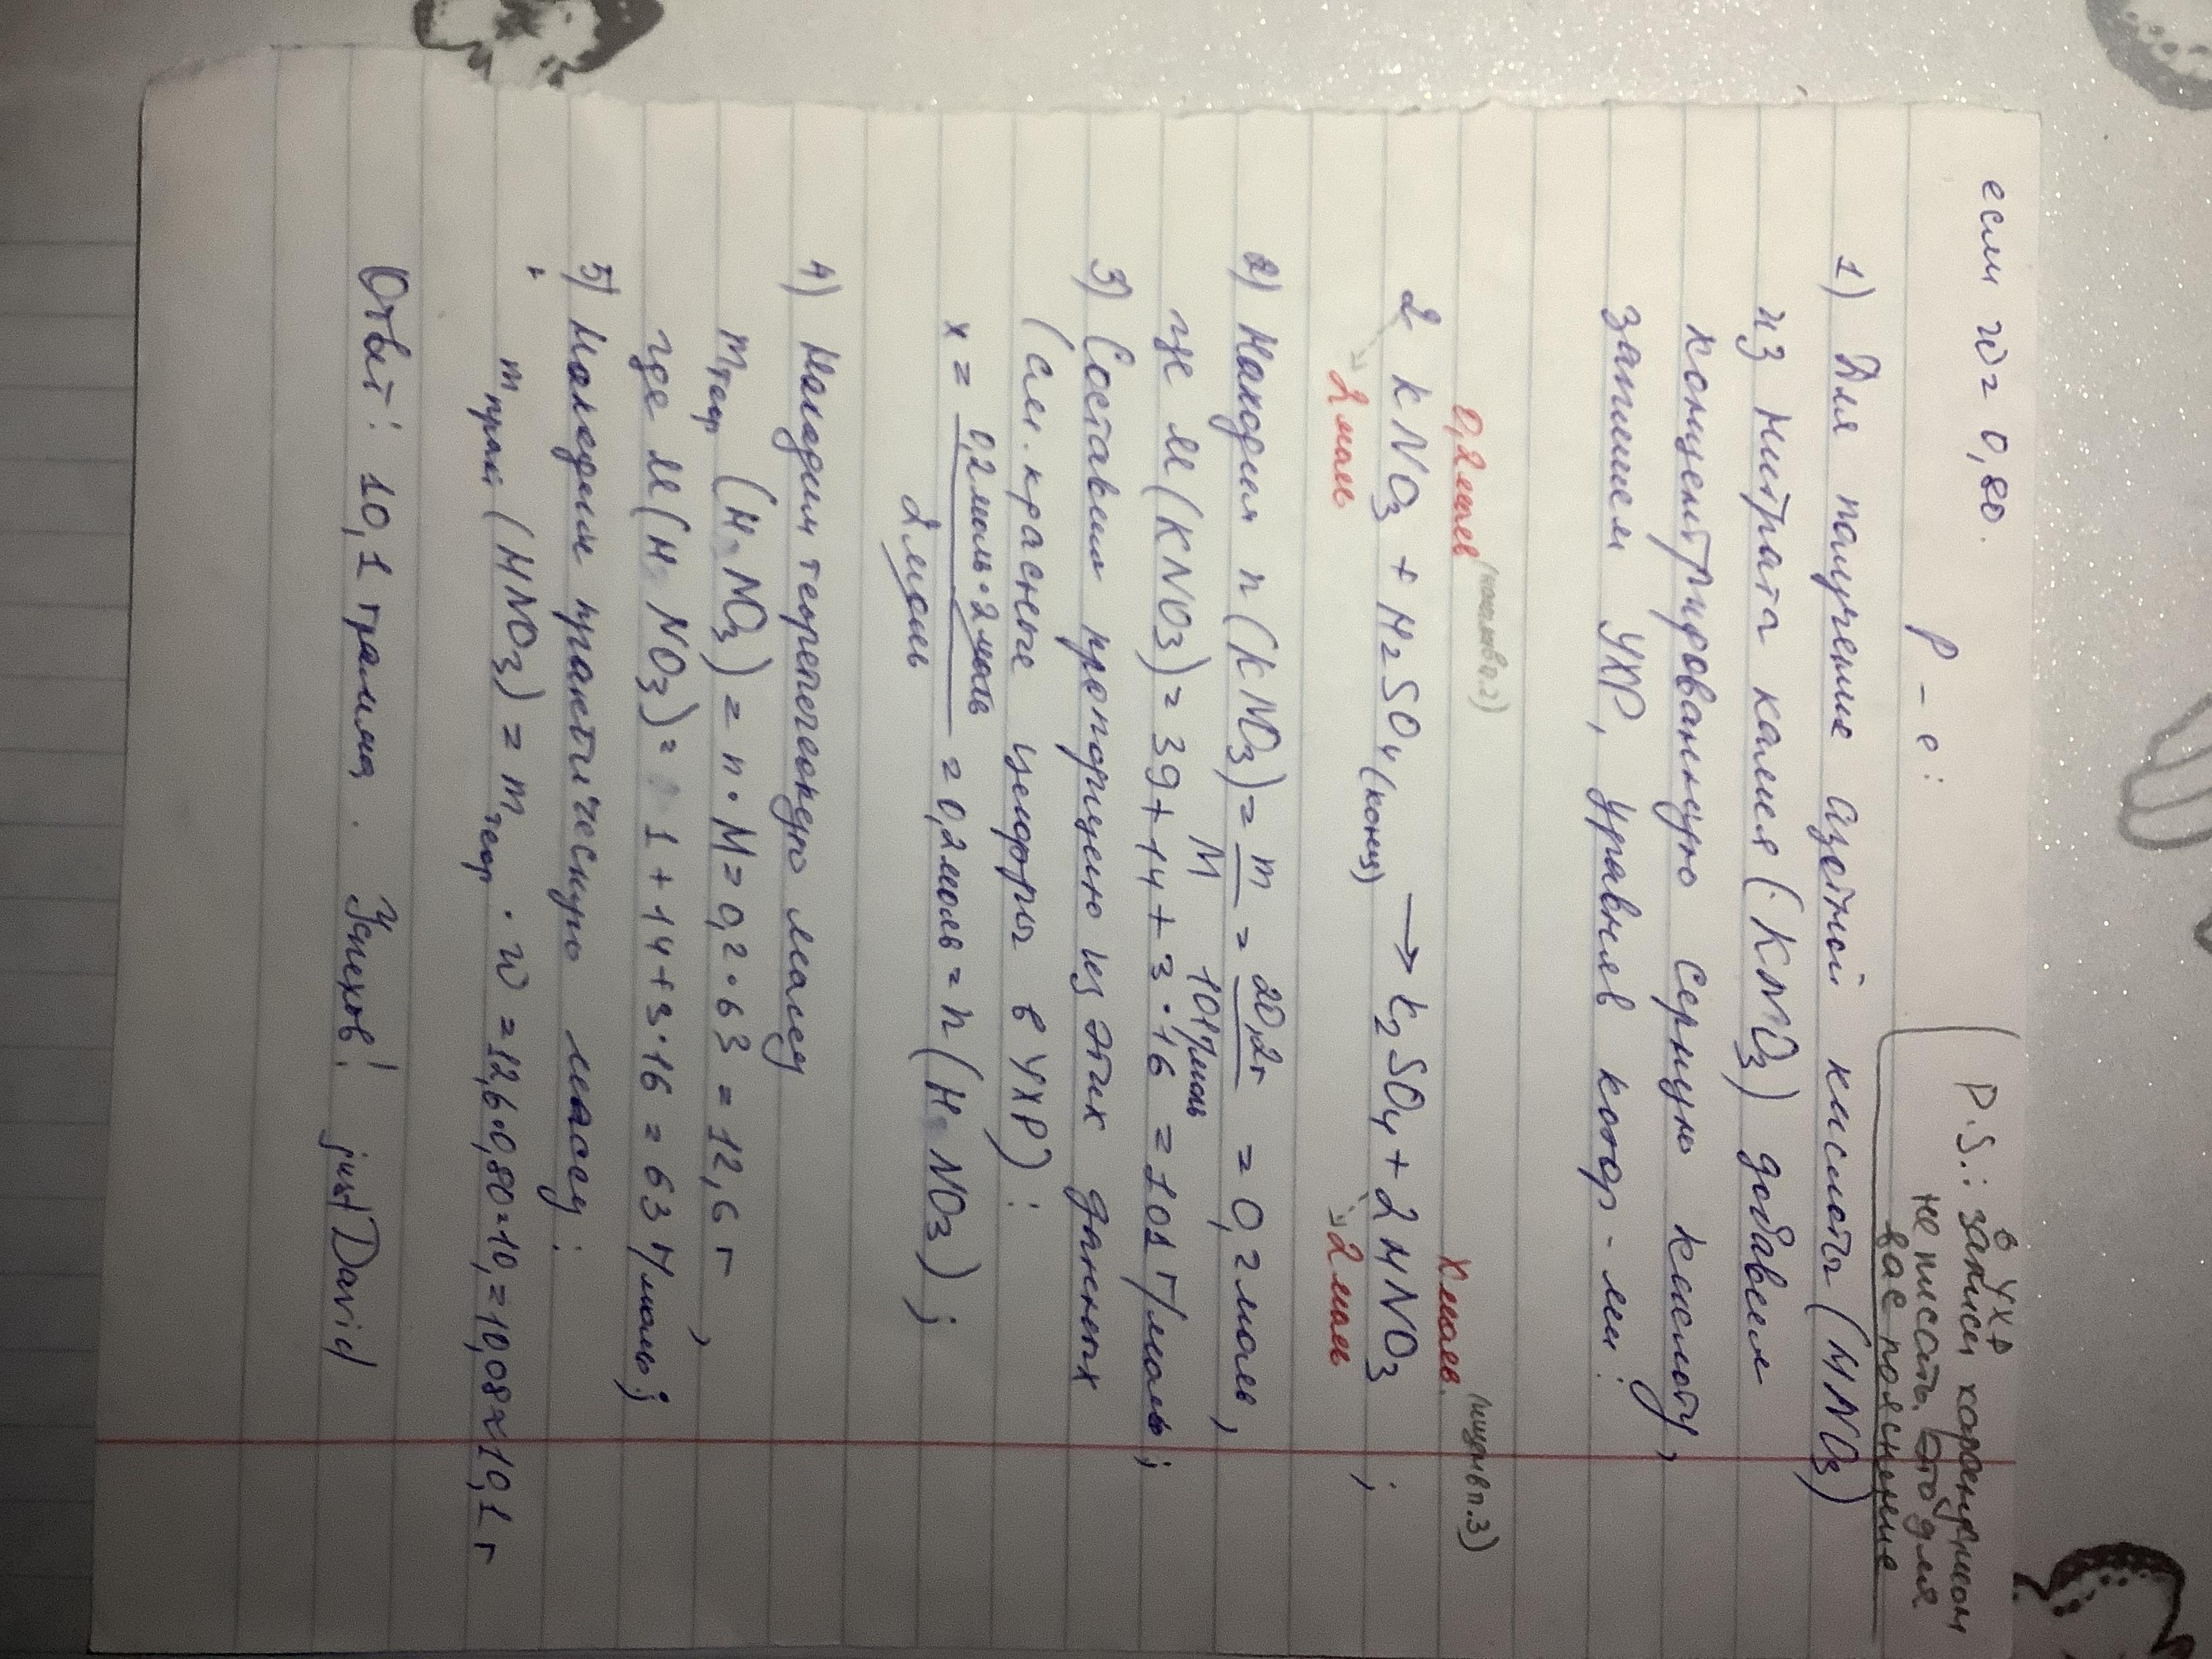 если w = 0,80.
р-е:
P.S.: записи карандашом
в УХР
не писать. Это для
вас пояснение
1) Для получения азотной кислоты (HNO3)
из нитрата калия (KNO3) добавим
концентрированную серную кислоту,
запишем УХР, уравняв коэф-ми:
0,2 моль (нашли в п.2) X моль (ищем в п.3)
2 KNO3 + H2SO4 (конц) → K2SO4 + 2 HNO3 ;
2 моль 2 моль
2) Находим n (KNO3) = m/M = 20,2г/101 г/моль = 0,2 моль,
где M (KNO3) = 39 + 14 + 3 · 16 = 101 г/моль;
3) Составим пропорцию из этих данных
(см. красные цифры в УХР):
x = 0,2 моль · 2 моль / 2 моль = 0,2 моль = n (HNO3) ;
4) Находим теоретическую массу
mтеор (HNO3) = n · M = 0,2 · 63 = 12,6 г,
где M (HNO3) = 1 + 14 + 3 · 16 = 63 г/моль;
5) Находим практическую массу:
mпрак (HNO3) = mтеор · w = 12,6 · 0,80 = 10, = 10,08 ≈ 10,1 г
Ответ: 10,1 грамма. Успехов! just David